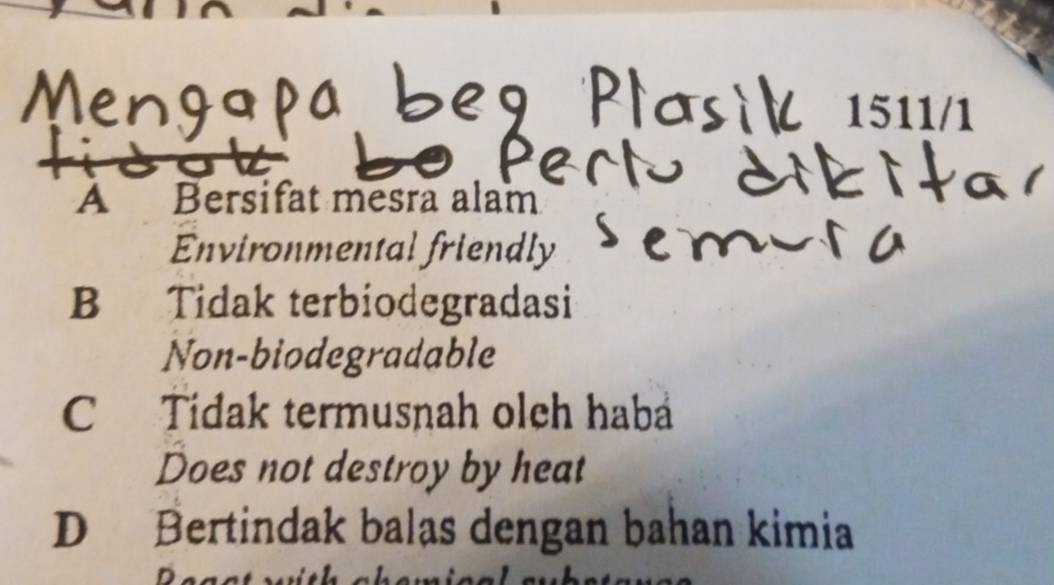 Mengapa beg Plasik 1511/1
tidak be Perlu dikitar
A Bersifat mesra alam
Environmental friendly
semura
B Tidak terbiodegradasi
Non-biodegradable
C Tidak termusnah oleh haba
Does not destroy by heat
D Bertindak balas dengan bahan kimia
React with chemical substance